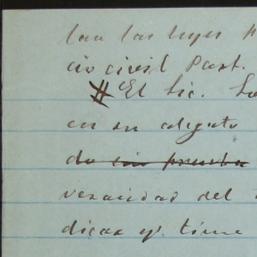 las leyes
civil Part.
# El Lic.
en su alegato
do sin prueba
veracidad del
dicar q. tiene